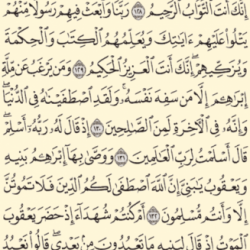 إِنَّكَ أَنتَ ٱلتَّوَّابُ ٱلرَّحِيمُ ١٢٨ رَبَّنَا وَٱبْعَثْ فِيهِمْ رَسُولًا مِّنْهُمْ
يَتْلُوا۟ عَلَيْهِمْ ءَايَـٰتِكَ وَيُعَلِّمُهُمُ ٱلْكِتَـٰبَ وَٱلْحِكْمَةَ
وَيُزَكِّيهِمْ إِنَّكَ أَنتَ ٱلْعَزِيزُ ٱلْحَكِيمُ ١٢٩ وَمَن يَرْغَبُ عَن مِّلَّةِ
إِبْرَٰهِـۧمَ إِلَّا مَن سَفِهَ نَفْسَهُۥ وَلَقَدِ ٱصْطَفَيْنَـٰهُ فِى ٱلدُّنْيَا
وَإِنَّهُۥ فِى ٱلْـَٔاخِرَةِ لَمِنَ ٱلصَّـٰلِحِينَ ١٣٠ إِذْ قَالَ لَهُۥ رَبُّهُۥٓ أَسْلِمْ
قَالَ أَسْلَمْتُ لِرَبِّ ٱلْعَـٰلَمِينَ ١٣١ وَوَصَّىٰ بِهَآ إِبْرَٰهِـۧمُ بَنِيهِ
وَيَعْقُوبُ يَـٰبَنِىَّ إِنَّ ٱللَّهَ ٱصْطَفَىٰ لَكُمُ ٱلدِّينَ فَلَا تَمُوتُنَّ
إِلَّا وَأَنتُم مُّسْلِمُونَ ١٣٢ أَمْ كُنتُمْ شُهَدَآءَ إِذْ حَضَرَ يَعْقُوبَ
ٱلْمَوْتُ إِذْ قَالَ لِبَنِيهِ مَا تَعْبُدُونَ مِنۢ بَعْدِى قَالُوا۟ نَعْبُدُ